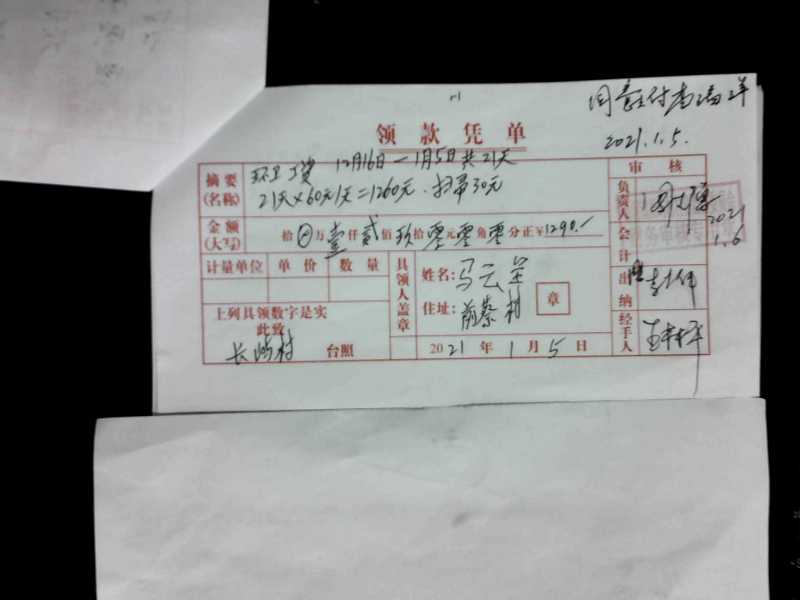 同意支付
2021.1.5.
领款凭单
摘要 环卫工资 12月16日—1月5日共21天
(名称) 21天×60元/天=1260元. 扫帚30元
审核
金额
(大写) 拾 万 壹仟 贰佰 玖拾 零元 零角 零分正¥1290.-
负责人
2021
1.6
会计
计量单位 单价 数量
具领人盖章
姓名: 马云
住址: 前蔡村
章
出纳
上列具领数字是实
此致
长屿村 台照
2021年1月5日
经手人